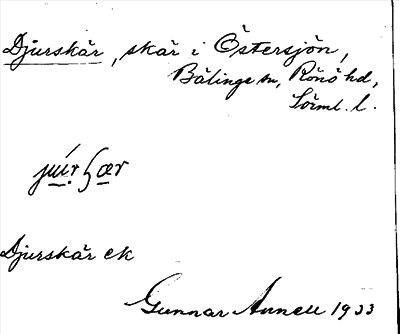 Djurskär, skär i Östersjön,
Bälinge sn, Rönö hd,
Sörml. l.
Djurskär ek
Gunnar Annell 1933